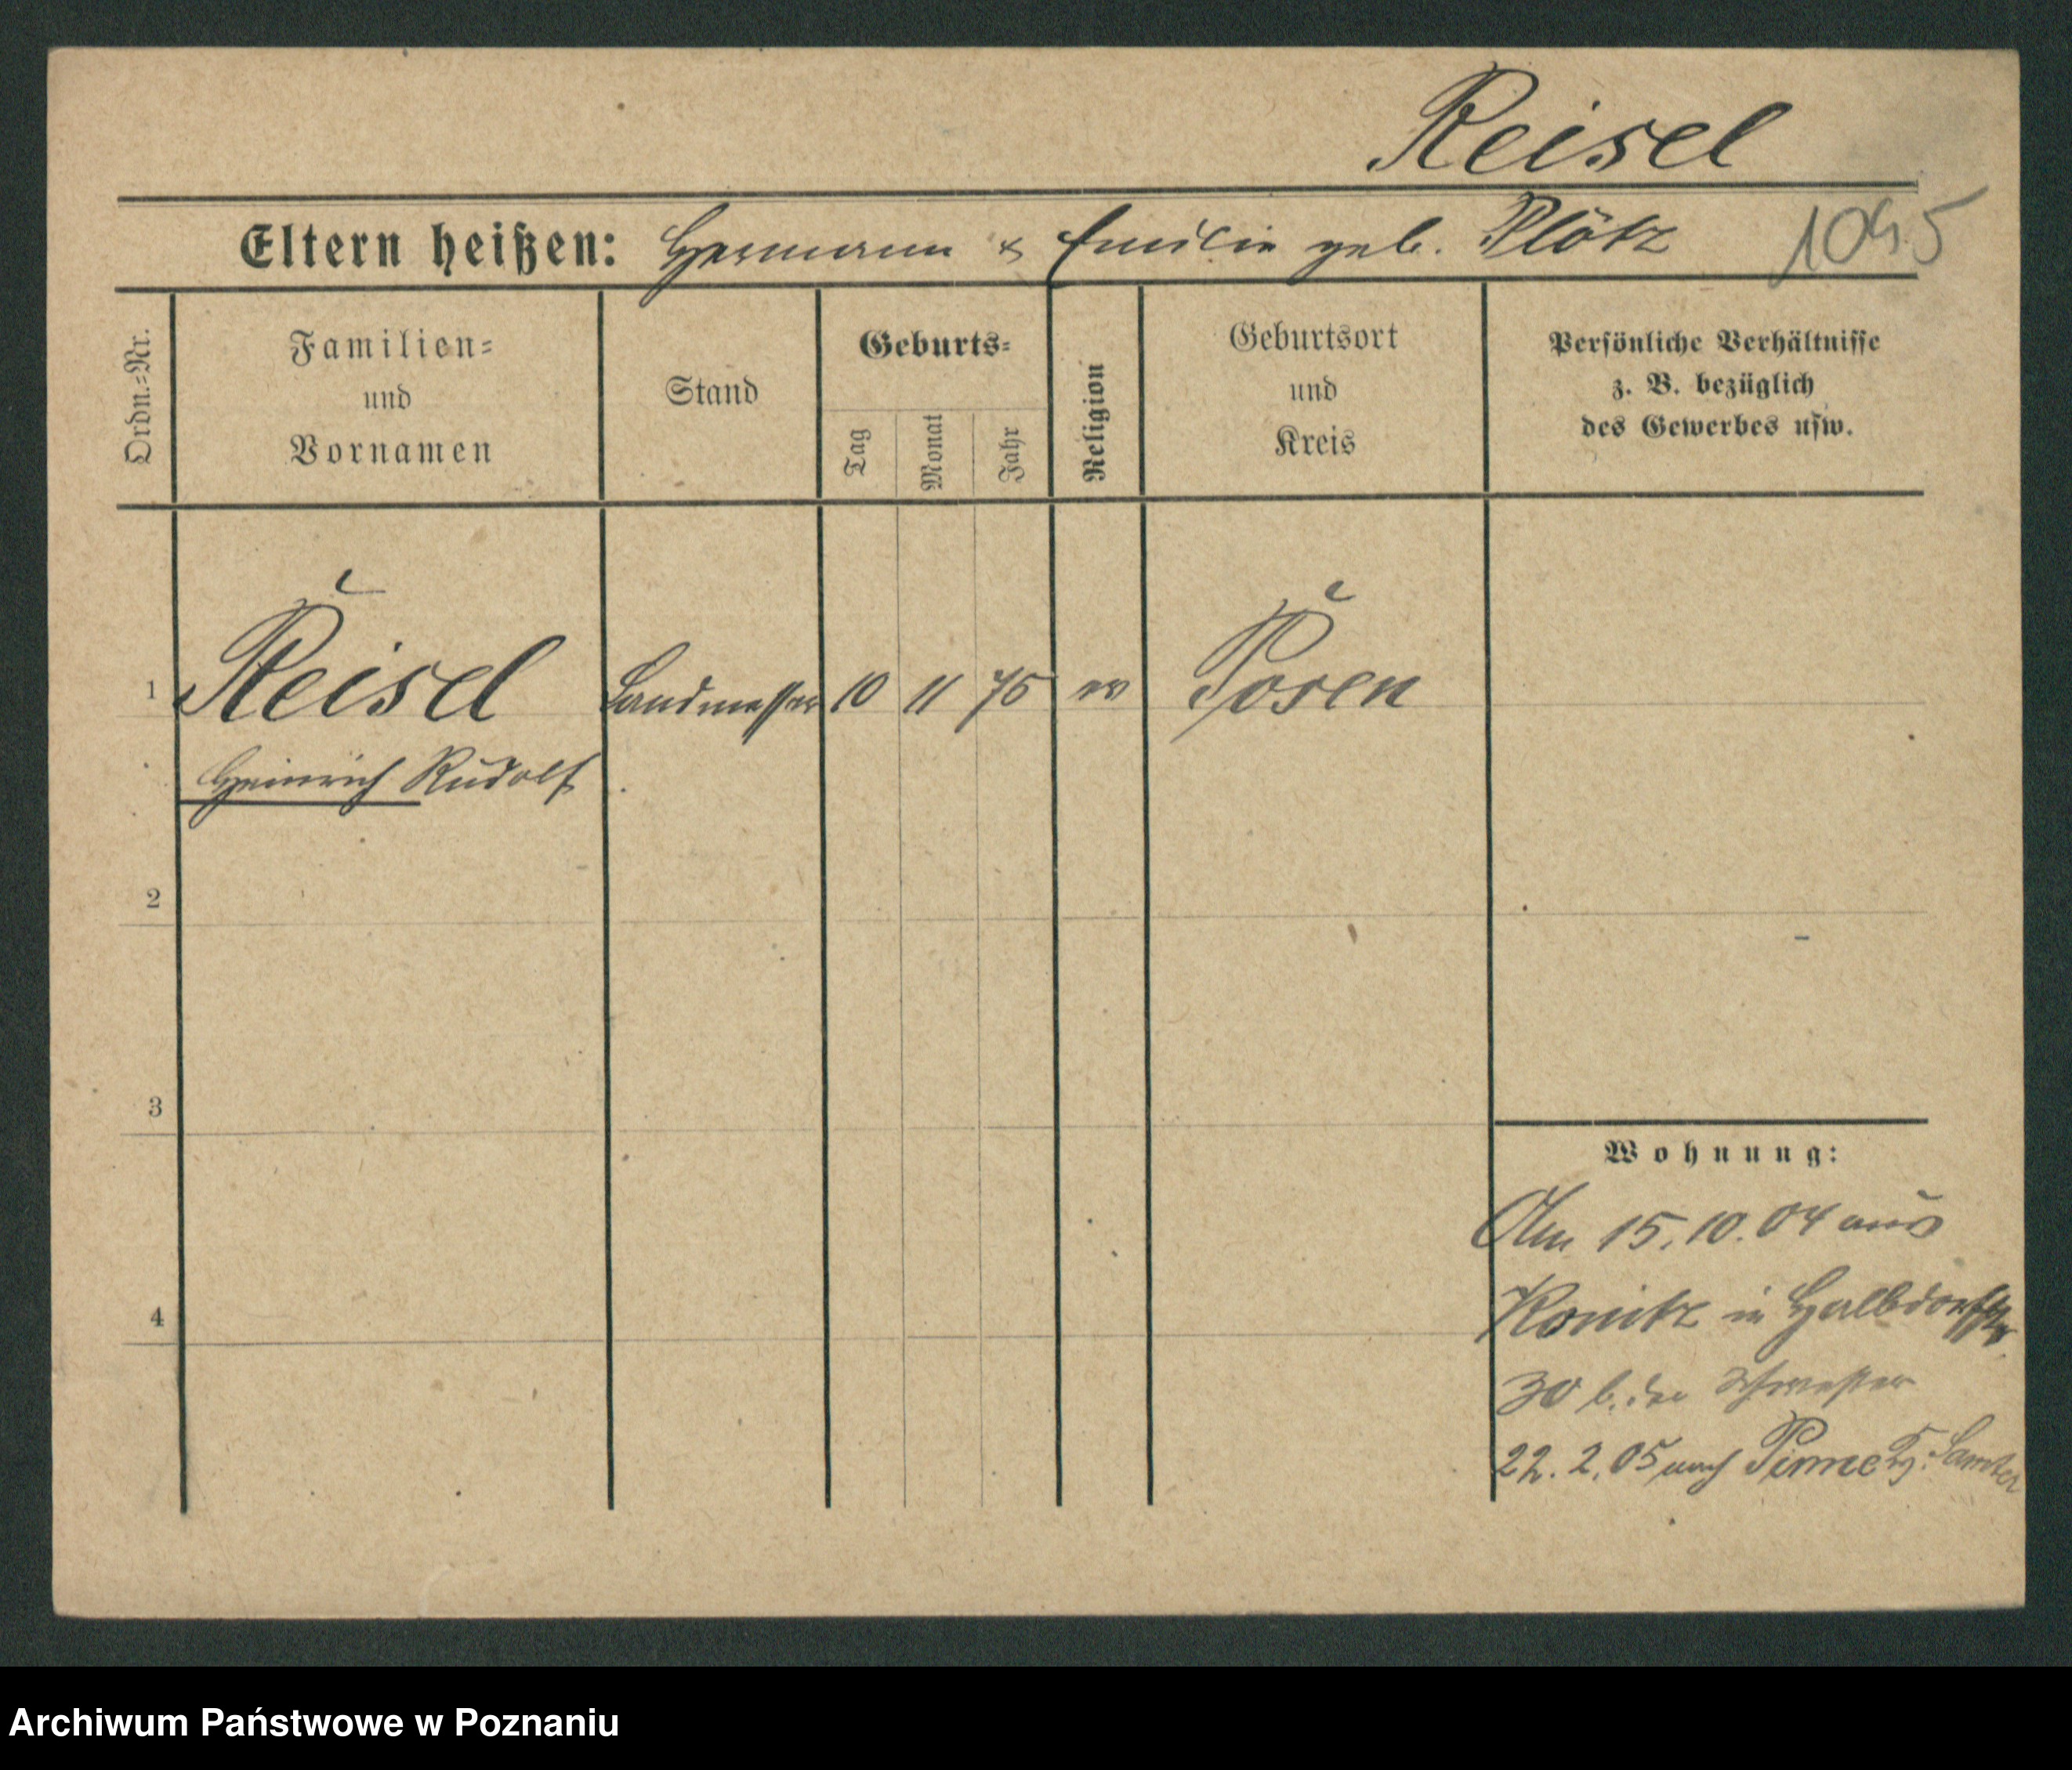 Reisel
Eltern heißen: Hermann & Emilie geb. Plötz 1045
Ordn.=Nr.
Familien=
und
Vornamen
Stand
Geburts=
Tag
Monat
Jahr
Religion
Geburtsort
und
Kreis
Persönliche Verhältnisse
z. B. bezüglich
des Gewerbes usw.
1 Reisel Landmesser 10 11 75 ev Posen
Heinrich Rudolf
2
3
4
Wohnung:
Am 15.10.04 aus
Konitz in Halbdorfstr.
30 b. der Schwester
22.2.05 nach Pinne Kr. Samter
Archiwum Państwowe w Poznaniu